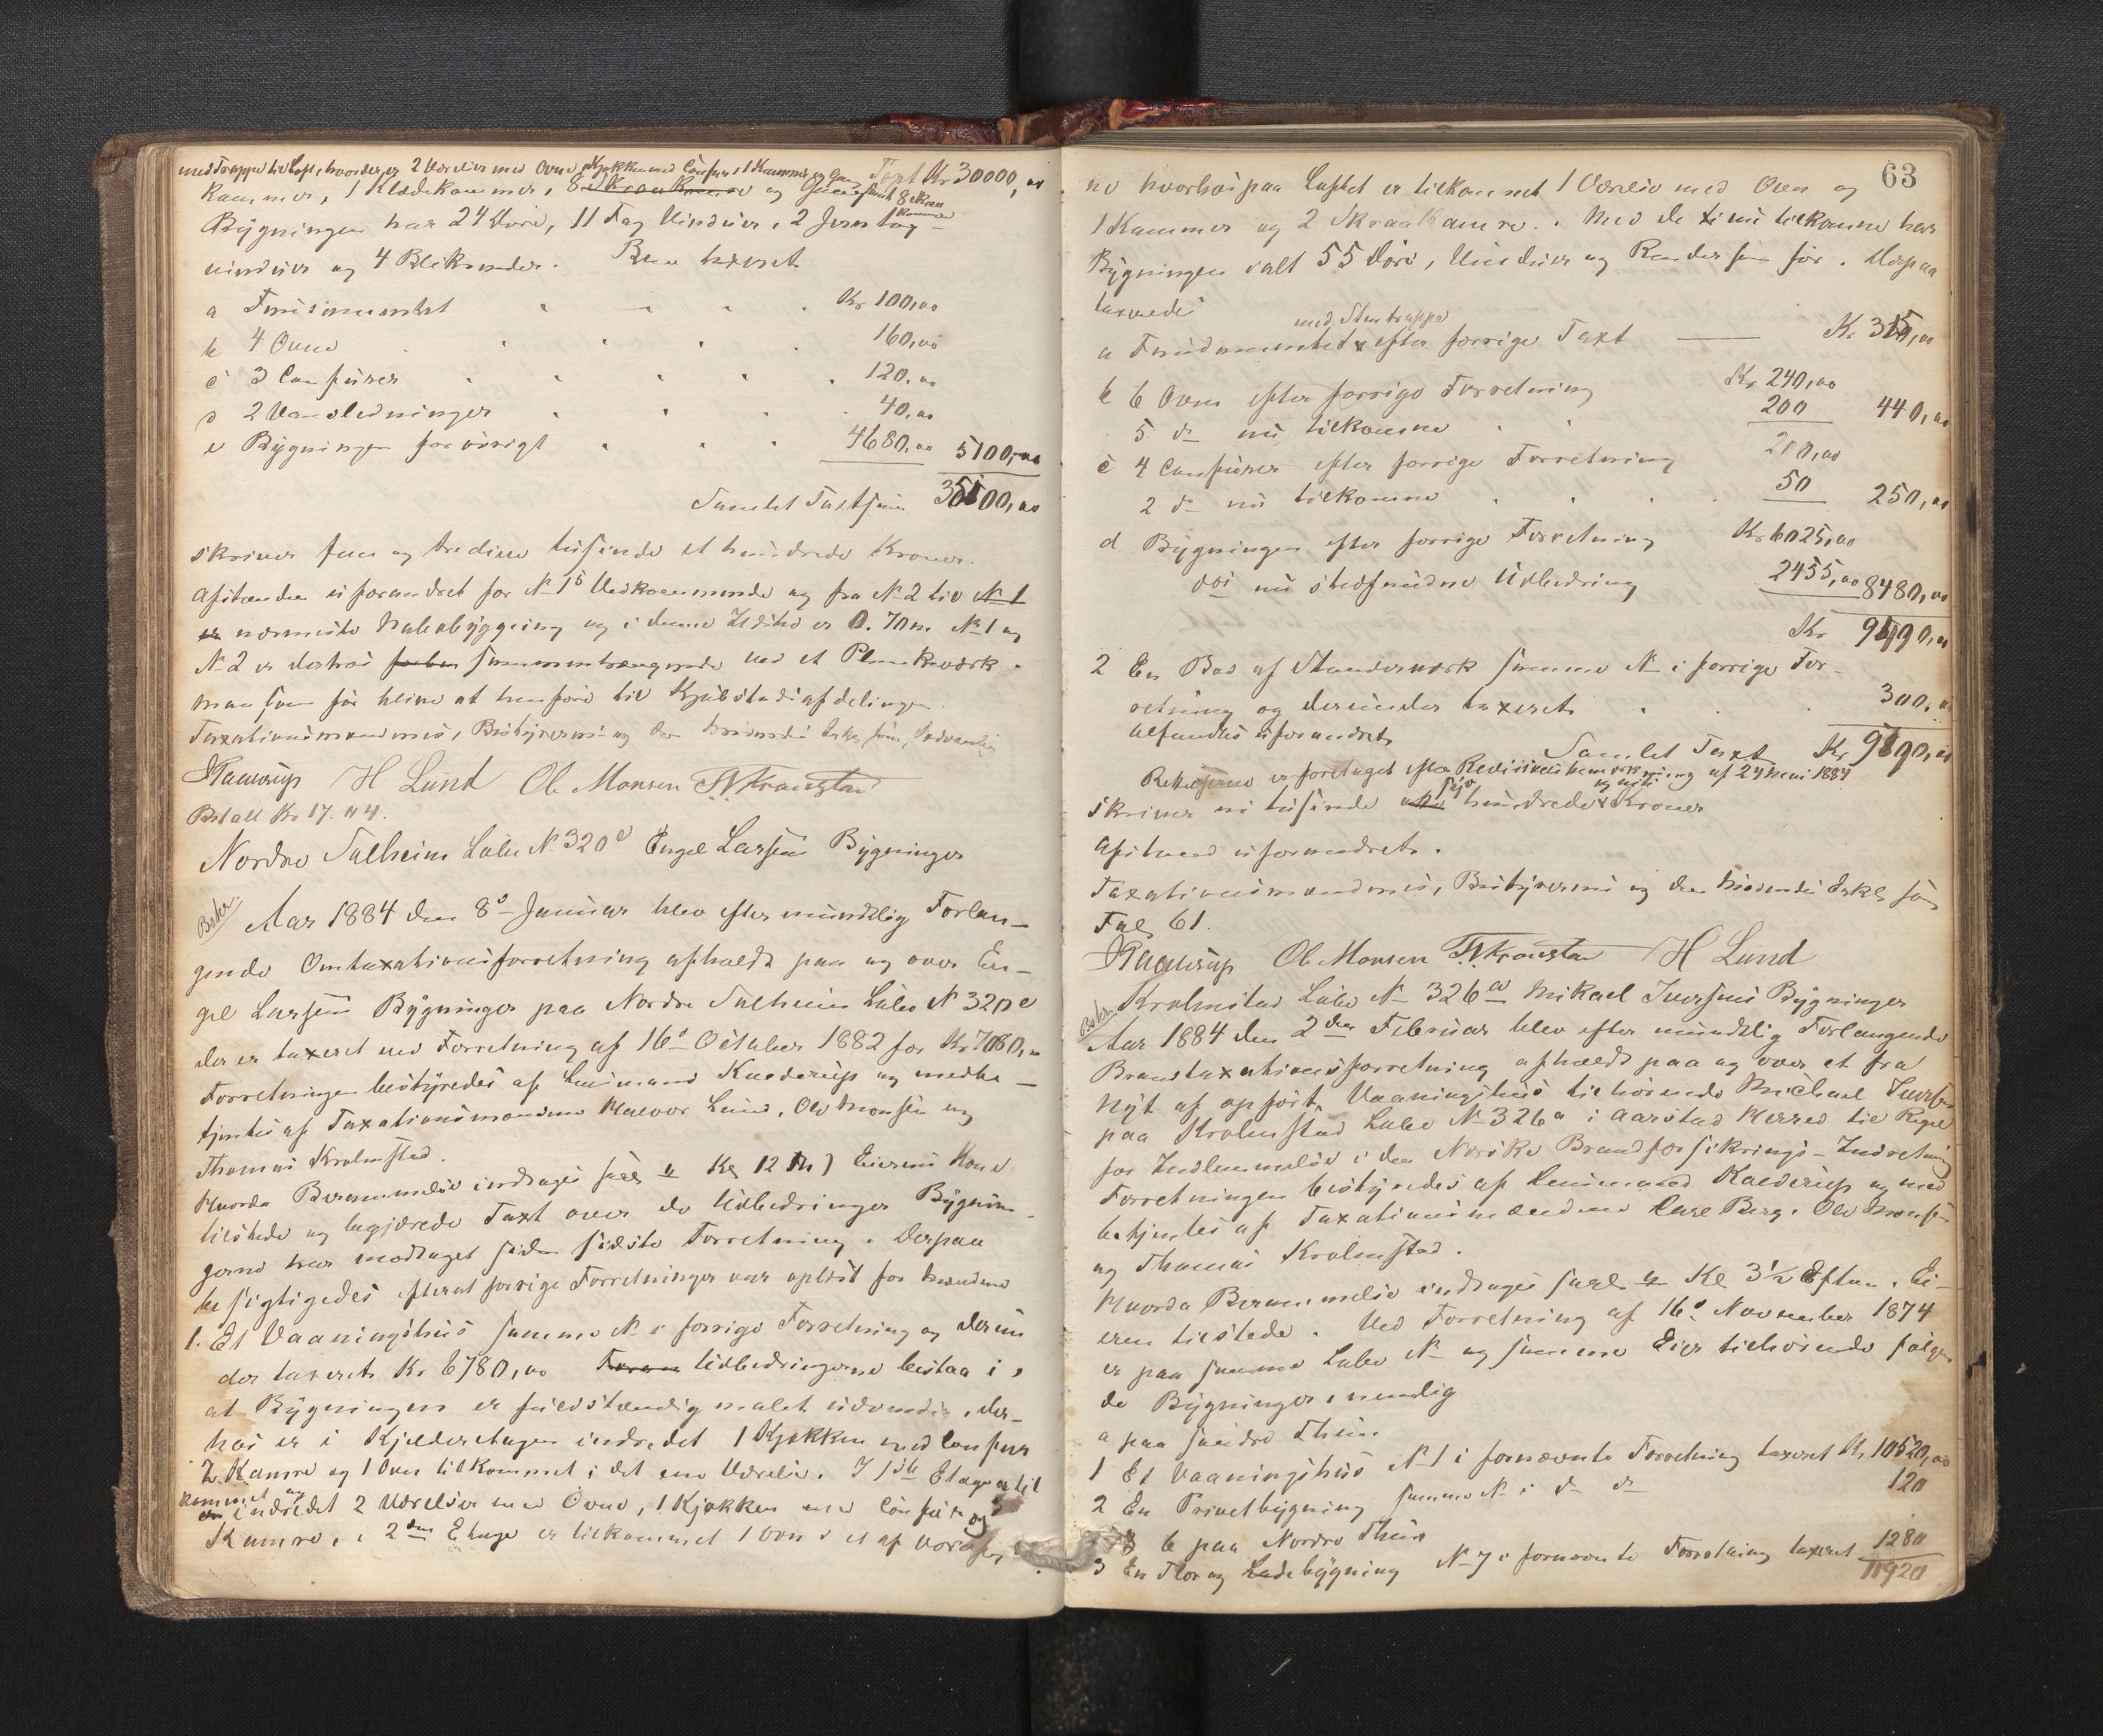 med Trappe til Loft, hvorder er 2 Værelser med Ovne, Kjøkken med Comfur, 1 Kammer og Gang Taxt Kr 30000,00
Kammer, 1 Klædekammer, 8 Skraakamre og Gang samt 8 Skraa
kammer
Bygningen har 24 Døre, 11 Fag Vinduer, 2 Jerntag-
vinduer og 4 Blikrender. Blev taxeret
a Fundamentet Kr 100,00
b 4 Ovne 160,00
c 3 Comfurer 120,00
d 2 Vandledninger 40,00
e Bygningen forøvrigt 4680,00 5100,00
Samlet Taxtsum 35100,00
skriver fem og tredive tusinde et hundrede Kroner.
Afstanden uforandret for No 1s Vedkommende og fra No 2 til No 1
er nærmeste Nabobygning og i denne Retning er 0.70 m. No 1 og
No 2 er derhos sammenhængende ved et Plankeværk.
man som før blive at henføre til Kjøbstadsafdelingen.
Taxationsmændenes, Bestyrerens og
JKaarup H Lund Ole Monsen T. Kronstad
Betalt Kr 17.44.
Nordre Solheim Løbe No 320e Engel Larsens Bygninger
Bekr.
Aar 1884 den 8de Januar blev efter mundtlig Forlan-
gende Omtaxationsforretning afholdt paa og over En-
gel Larsens Bygninger paa Nordre Solheim Løbe No 320e
der er taxeret ved Forretning af 16de October 1882 for Kr 7080,00
Forretningen bestyredes af Lensmand Kaarup og medbe-
tjentes af Taxationsmændene Halvor Lund, Ole Monsen og
Thomas Kronstad.
Hvorda Berammelse indtages Kl 12 Md) Eierens Kone
tilstede og begjærede Taxt over de Udbedringer Bygnin-
gerne har modtaget siden sidste Forretning. Derpaa
besigtigedes efterat forrige Forretninger var oplæst for Mændene
1. Et Vaaningshus samme No i forrige Forretning og derun
der taxeret Kr 6780,00 Udbedringerne bestaa i,
at Bygningen er fuldstændig malet udvendig, der-
hos er i Kjælderetagen indredet 1 Kjøkken med Comfur
2 Kamre og 1 Ovn tilkommet i det ene Værelse. I 1ste Etage er til
kommet og
indredet 2 Værelser med Ovne, 1 Kjøkken med Comfur og
Kamre, i 2den Etage er tilkommet 1 Ovn i et af Værelser
63
ne hvorhos paa Loftet er tilkommet 1 Værelse med Ovn og
1 Kammer og 2 Skraakamre. Med de nu tilkomne har
Bygningen ialt 55 Døre, Vinduer og Render som før. Derpaa
taxeredes
med Stentrappe
a Fundamentet efter forrige Taxt Kr 315,00
b 6 Ovne efter forrige Forretning Kr 240,00
5 do nu tilkomne 200 440,00
c 4 Comfurer efter forrige Forretning 200,00
2 do nu tilkomne 50 250,00
d Bygningen efter forrige Forretning Kr 6025,00
nu stedfundne Udbedring 2455,00 8480,00
Kr 9490,00
2 En Bod af Stenderværk samme No i forrige For-
retning og derunder taxeret 300,00
befandtes uforandret
Samlet Taxt Kr 9790,00
Rettelserne er foretaget efter Revisionsbemærkning af 24 Mai 1884
syv og niti
skriver ni tusinde hundrede Kroner
Afstand uforandret.
Taxationsmændenes, Bestyrerens og
Fol 61.
JKaarup Ole Monsen T. Kronstad H Lund
Bekr.
Kronstad Løbe No 326a Mikael Iversens Bygninger
Aar 1884 den 2den Februar blev efter mundtlig Forlangende
Brandtaxationsforretning afholdt paa og over et fra
Nyt af opført Vaaningshus tilhørende Michael Iversen
paa Kronstad Løbe No 326a i Aarstad Herred til Regel
for Indlemmelse i den Norske Brandforsikrings-Indretning
Forretningen bestyredes af Lensmand Kaarup og med
betjentes af Taxationsmændene Carl Berg. Ole Monsen
og Thomas Kronstad.
Hvorda Berammelse indtages Kl 3½ Eftm. Ei-
eren tilstede. Ved Forretning af 16de November 1874
er paa samme Løbe No og samme Eier tilhørende følgen
de Bygninger, nemlig
a paa søndre Thun
1 Et Vaaningshus No 1 i fornævnte Forretning taxeret Kr. 10520,00
2 En Privetbygning samme No i do do 120
b paa Nordre Thun
3 En Flor og Ladebygning No 7 i fornævnte Forretning taxeret 1280
11920